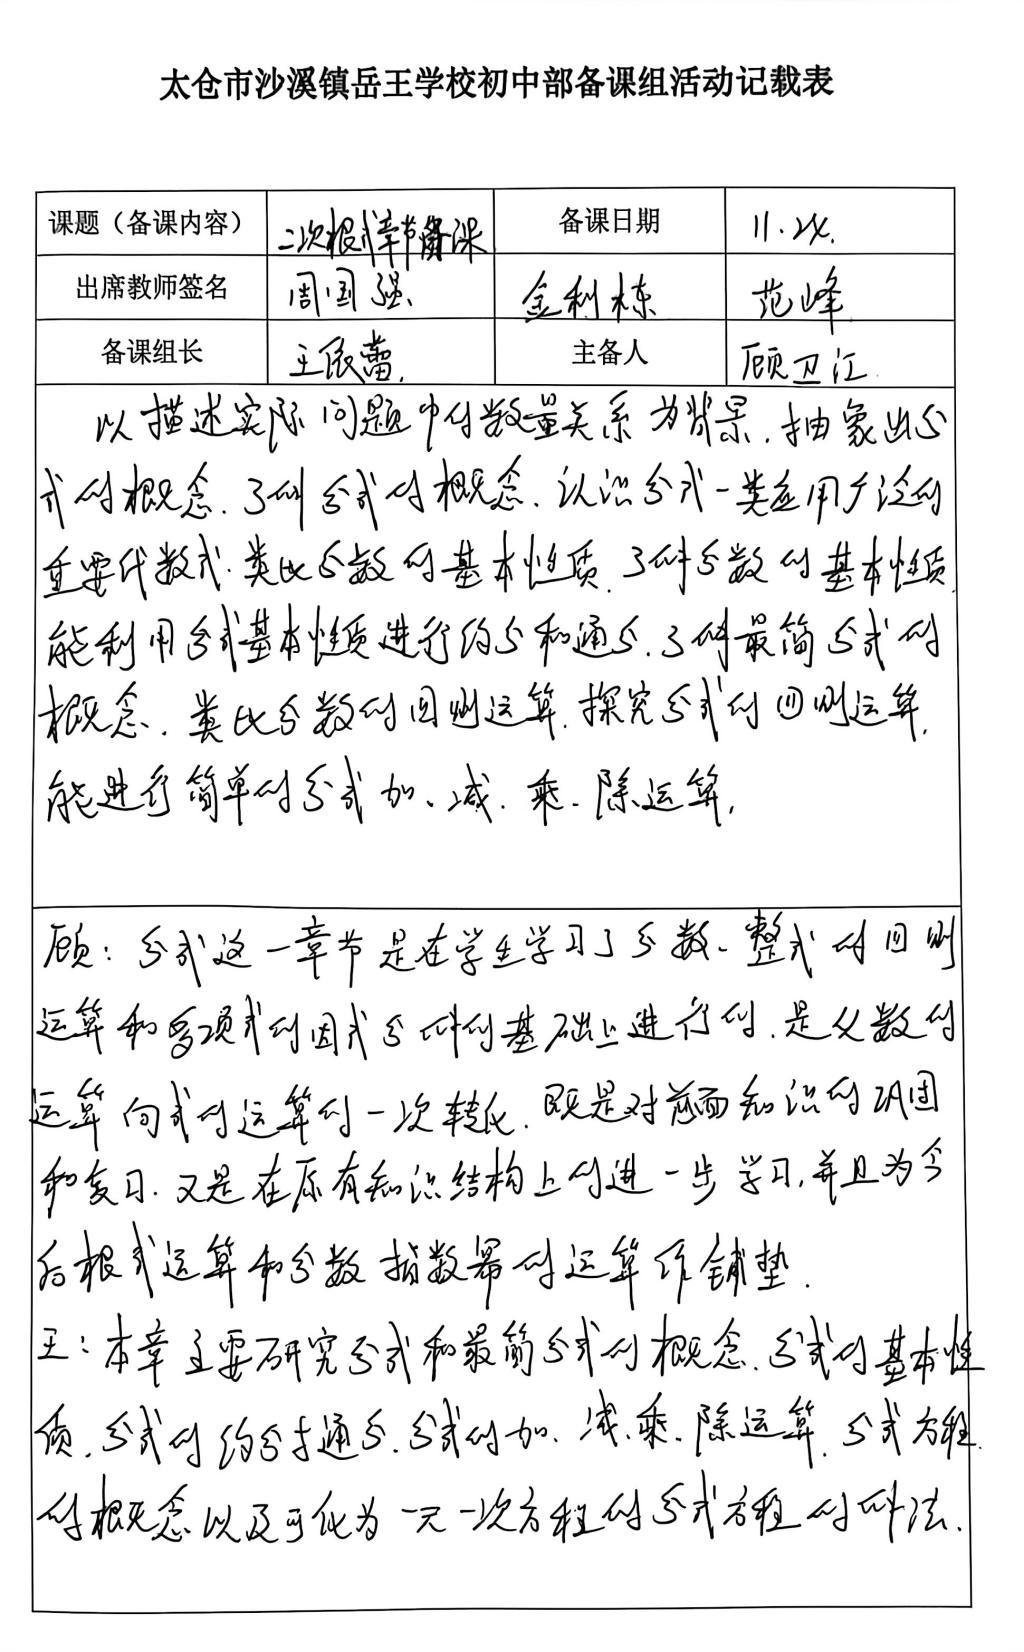 太仓市沙溪镇岳王学校初中部备课组活动记载表
课题（备课内容） 二次根式章节备课 备课日期 11.24.
出席教师签名 周国强 金利栋 范峰
备课组长 王依蕾 主备人 顾卫江
以描述实际问题中的数量关系为背景.抽象出分
式的概念.了解分式的概念.认识分式一类应用广泛的
重要代数式.类比分数的基本性质.了解分数的基本性质.
能利用分式基本性质进行约分和通分.了解最简分式的
概念.类比分数的四则运算.探究分式的四则运算.
能进行简单的分式加、减、乘、除运算.
顾：分式这一章节是在学生学习了分数、整式的四则
运算和多项式的因式分解的基础上进行的.是从数的
运算向式的运算的一次转化.既是对前面知识的巩固
和复习.又是在原有知识结构上的进一步学习,并且为今
后根式运算和分数指数幂的运算作铺垫.
王：本章主要研究分式和最简分式的概念.分式的基本性
质.分式的约分与通分.分式的加、减、乘、除运算.分式方程
的概念以及可化为一元一次方程的分式方程的解法.